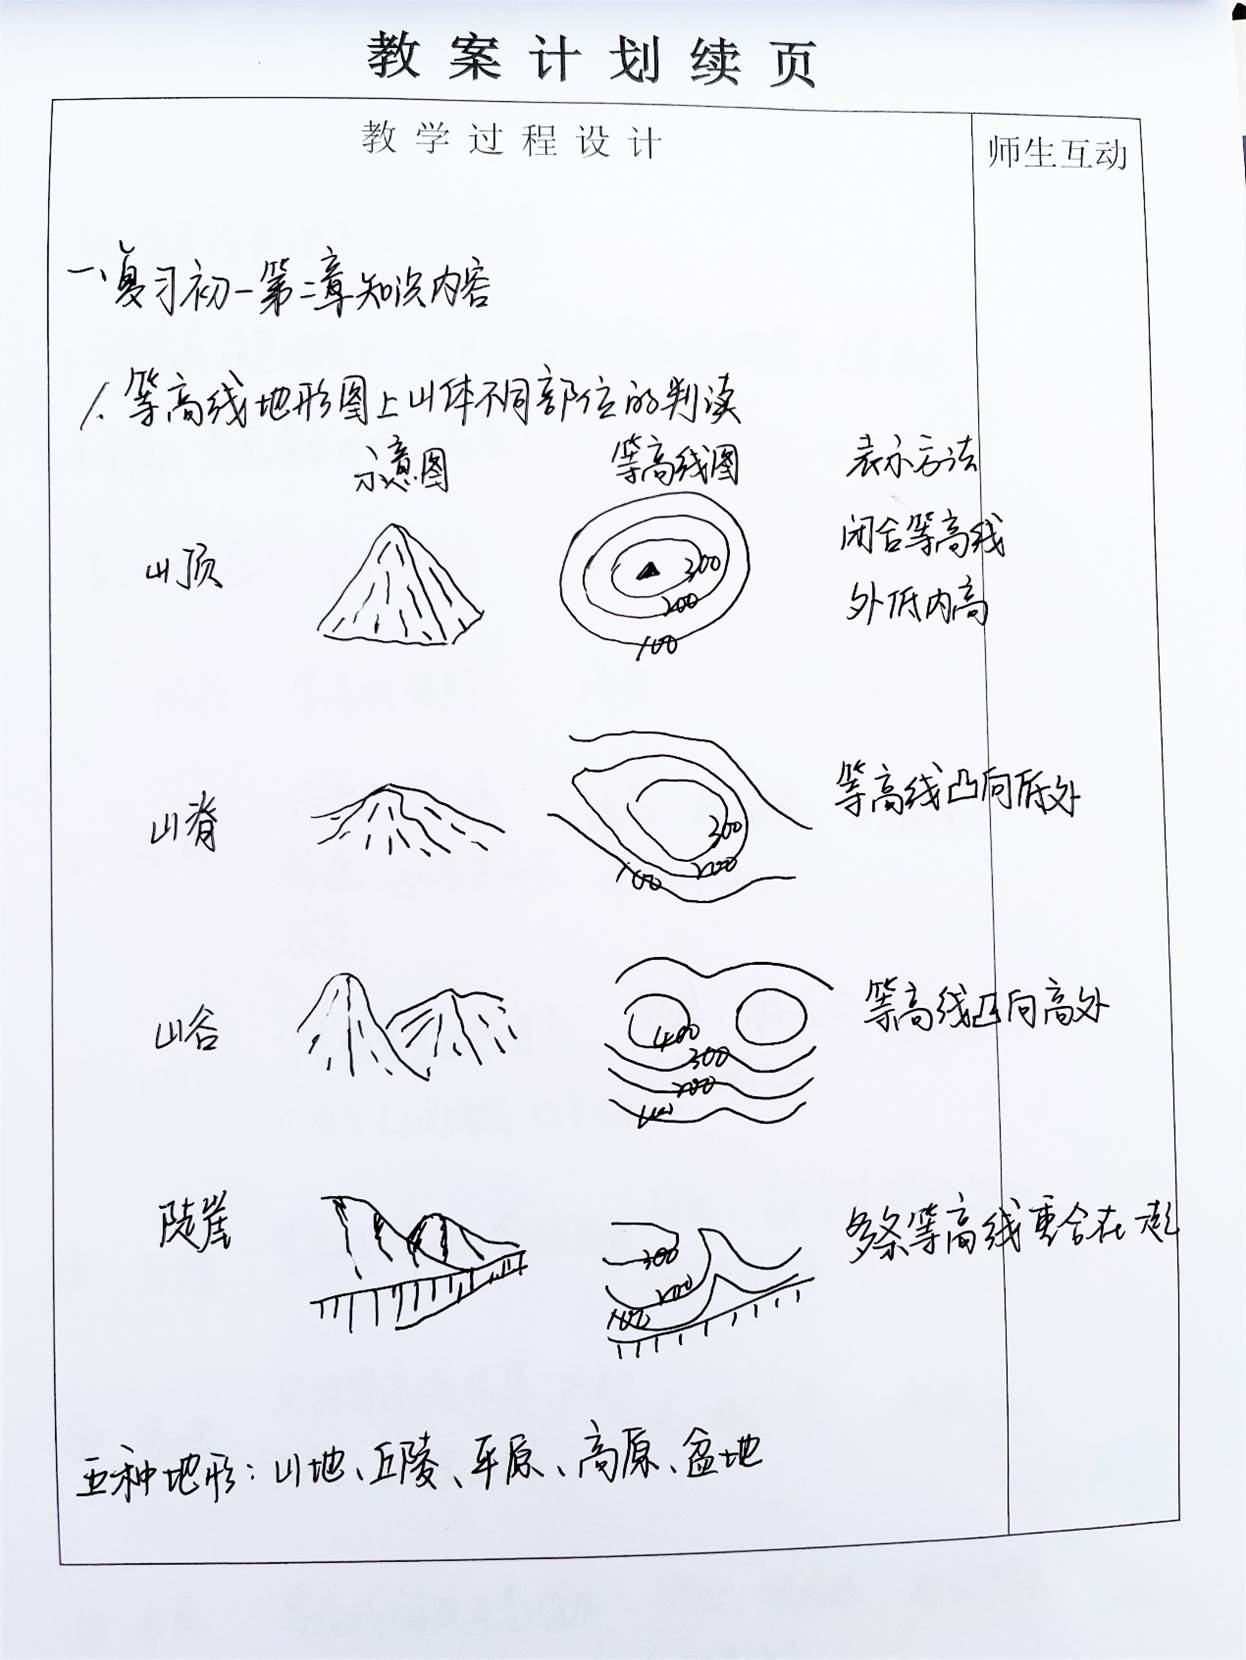 教案计划续页
教学过程设计
师生互动
一、复习初一第二章知识内容
1. 等高线地形图上山体不同部位的判读
示意图 等高线图 表示方法
山顶 300 200 100 闭合等高线
外低内高
山脊 300 200 100 等高线凸向低处
山谷 400 300 200 100 等高线凸向高处
陡崖 300 200 100 多条等高线重合在一起
五种地形：山地、丘陵、平原、高原、盆地